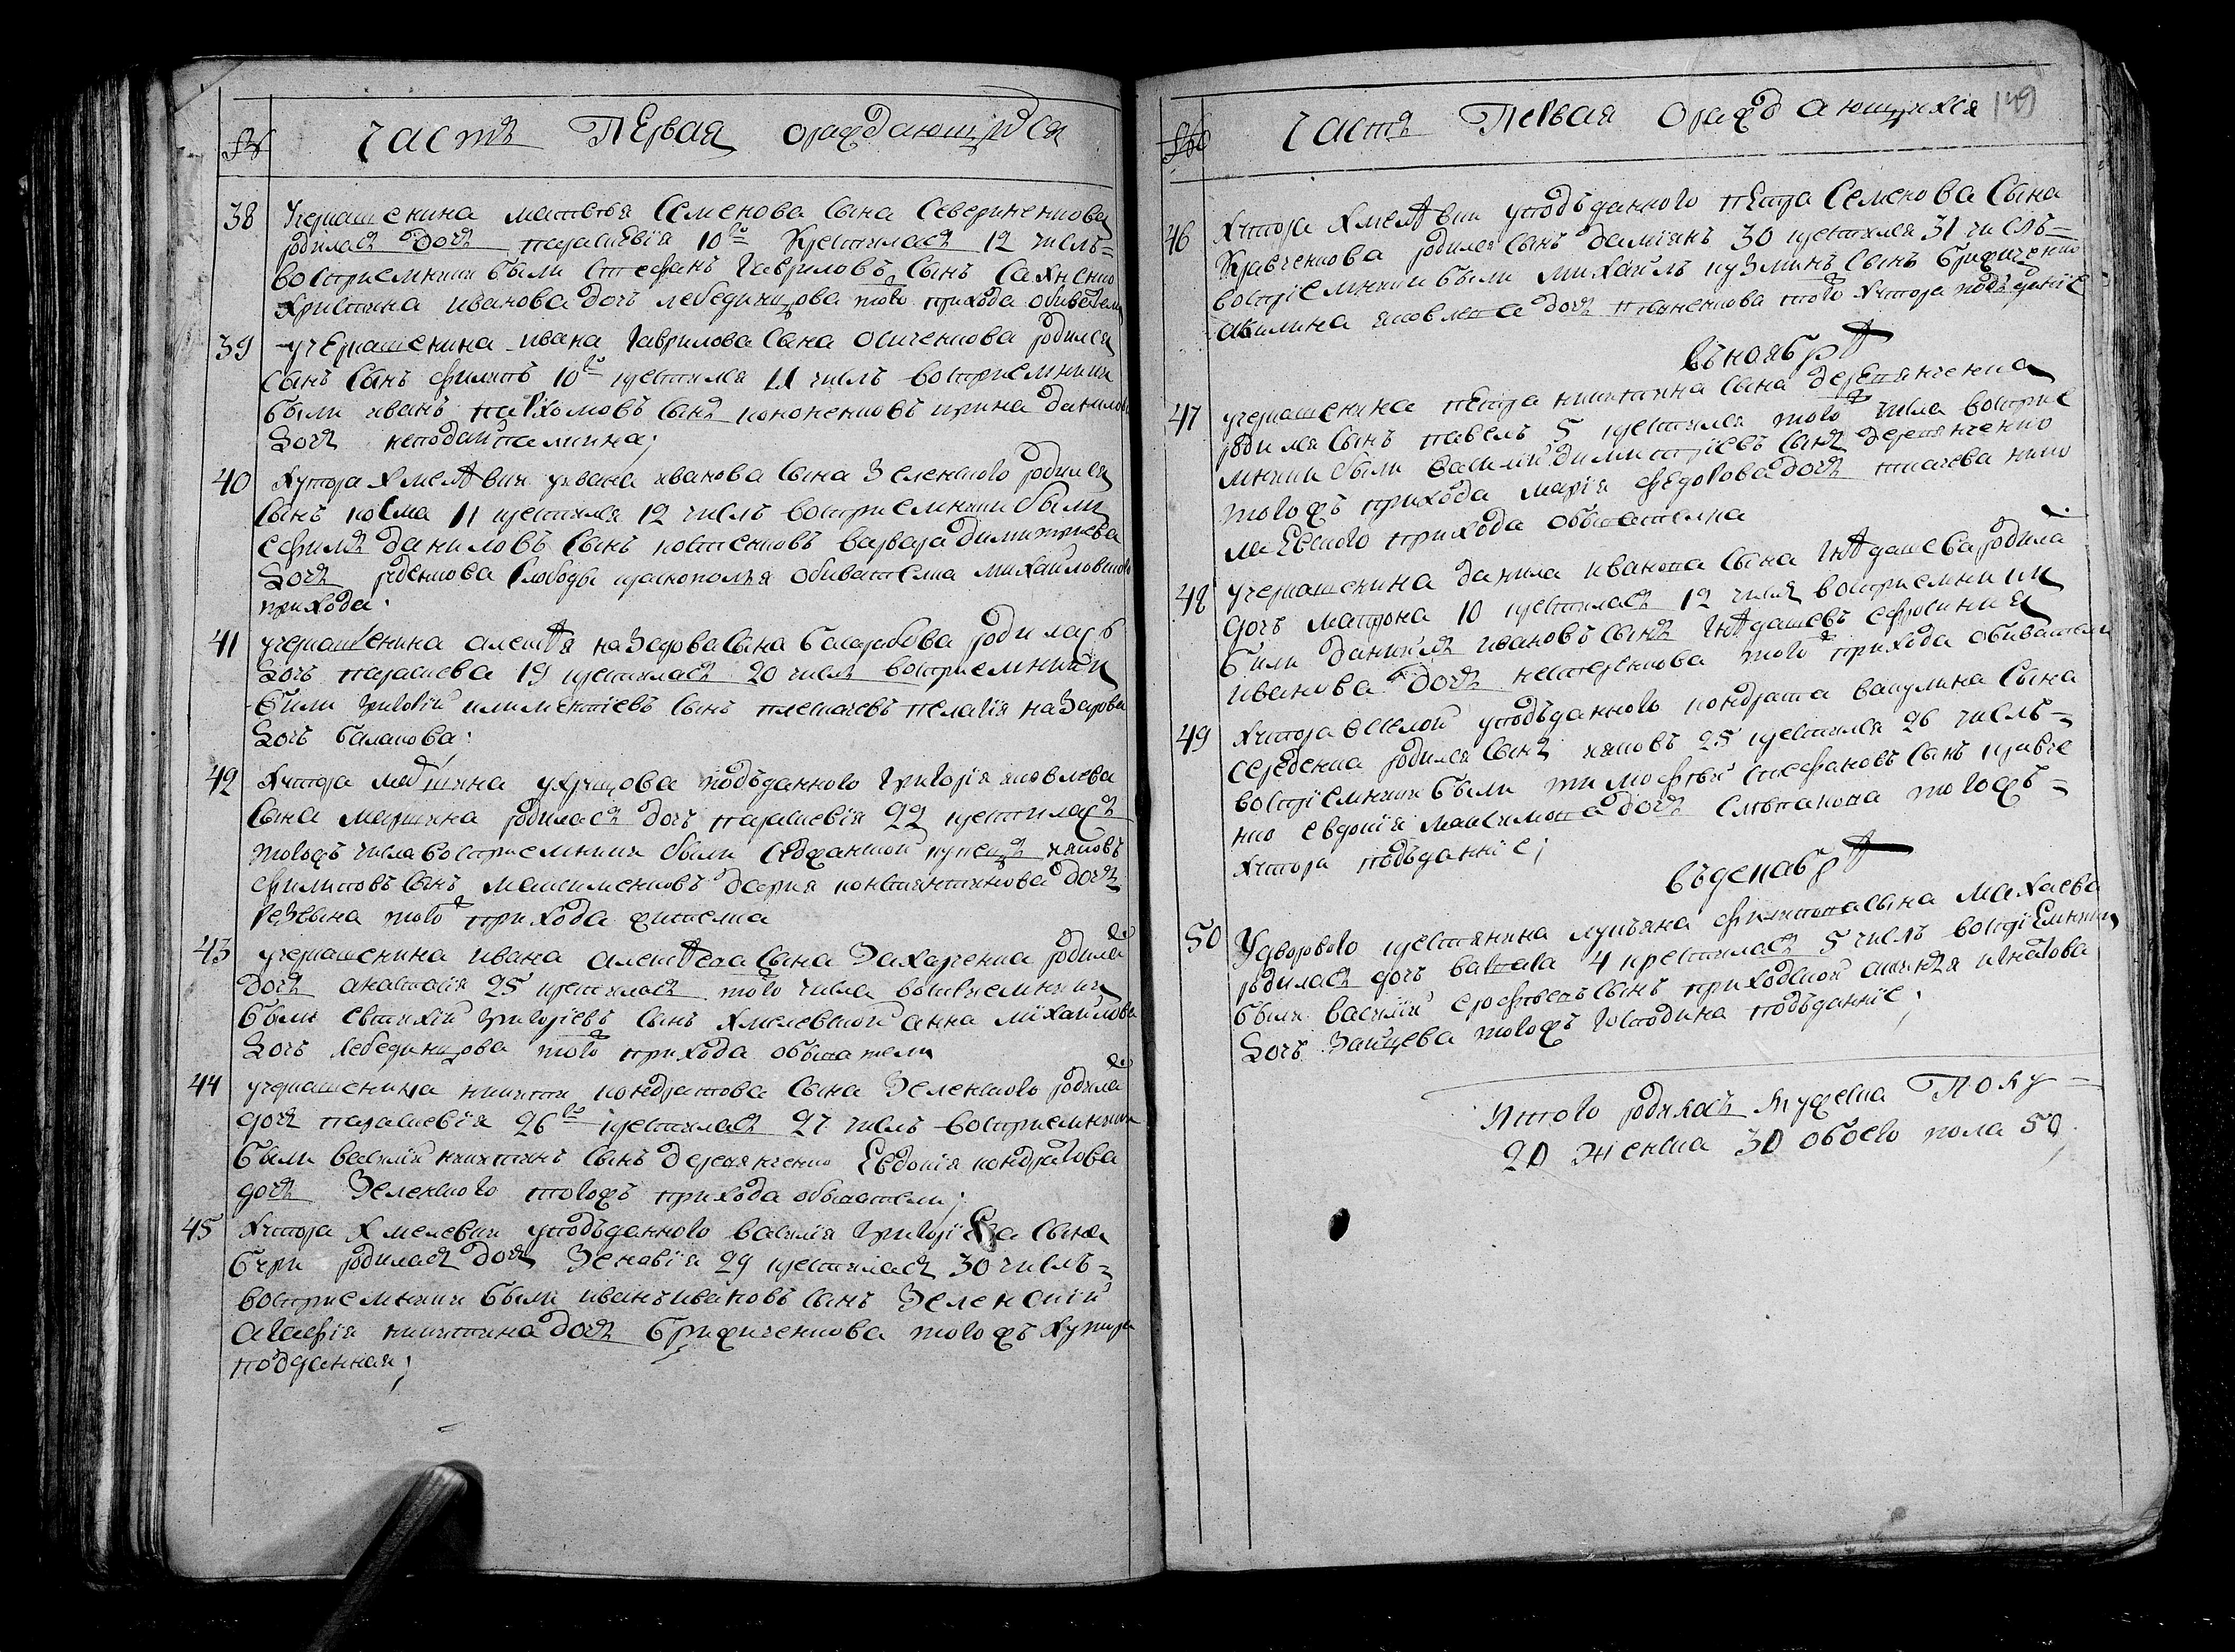 №
часть Первая ораждающихся
38 Учеркашенина матвѣя Семенова Сына Севериненкова
родилась дочь параскевiя 10го Крестилась 12 числъ
восприемники были стефанъ Гавриловъ Сынъ Сахненко
христина иванова дочь лебединцова того прихода обиватели
39 учеркашенина ивана Гаврилова Сына Осиченкова родился
Сынъ Сынъ филипъ 10го крестился 11 числъ восприемники
были иванъ пархомовъ Сынъ кононенковъ ирина данилова
дочь
40 хутора хмелѣвки уивана иванова Сына Зеленского родился
Сынъ косма 11 крестился 12 числъ восприемники были
даниловъ Сынъ костенковъ варвара димитриева
дочь Слободы краснополья обивателка михайловского
прихода
41 учеркашенина алексѣя назарова Сына родилась
дочь параскева 19 крестилась 20 числа восприемники
были григорiй климентiевъ Сынъ пелагiя назарова
дочь балакова;
42 хутора подъданного григорiя яковлева
Сына марткина родилась дочь параскевiя 22 крестилась
тогожъ числа восприемники были купецъ яковъ
филиповъ Сынъ максименковъ дария константинова дочь
того прихода жителка
43 учеркашенина ивана алексѣева Сына Захарченка родилась
дочь анастасiя 25 крестилась того числа восприемники
были евтихiй григорiевъ Сынъ хмелевской анна михайлова
дочь лебединцова того прихода обыватели
44 учеркашенина никиты кондратова Сына Зеленского родилась
дочь параскевiя 26го крестилась 27 числъ восприемники
были василiй никитинъ Сынъ деревянченко Евдокiя кондратова
дочь Зеленского тогожъ прихода обыватели;
45 хутора хмелевки уподъданного василiя григорiева Сына
родилась дочь Зеновiя 29 крестилась 30 числъ
восприемники были иванъ ивановъ Сынъ Зеленскiй
агафiя никитина дочь брижиченкова тогожъ хутора
подданная;
149
№
часть Первая ораждающихся
46 хутора хмелѣвки уподъданного петра Семенова Сына
Кравченкова родился Сынъ дамiянъ 30 крестился 31 числъ
воспрiемники были михайлъ кузминъ Сынъ брижиченко
акилина яковлева дочь того хутора подъданнiе
въноябрѣ
47 учеркашенина петра никитина Сына деревянченка
родился Сынъ павелъ 5 крестился того числа восприе
мники были василiй димитрiевъ Сынъ деревянченко
тогожъ прихода марiя федорова дочь ткачева нико
лаевского прихода обывателка
48 учеркашенина данила иванова Сына родилась
дочь матрона 10 крестилась 12 числа восприемники
были данiилъ ивановъ Сынъ ефросиния
иванова дочь нестеренкова того прихода обиватели
49 хутора веселой уподъданного кондрата вакулина Сына
середенка родился Сынъ яковъ 25 крестился 26 числъ
воспрiемники были тимофѣй стефановъ Сынъ кравче
нко евдокiя максимова дочь тогожъ
хутора подъданнiе;
въдекабрѣ
50 Удворового крестянина лукъяна филипова Сына Махаева
родилась дочь варвара 4 крестилась 5 числъ воспрiемники
были василiй Сынъ приходской игнатова
дочь Зайцева тогожъ господина подъданнiе;
Итого родилась мужеска Полу
20 женска 30 обоего пола 50